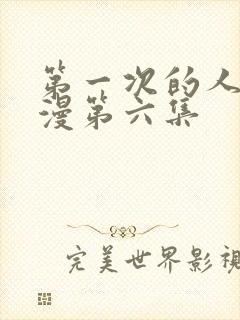 第一次的人
漫第六集
完美世界影视